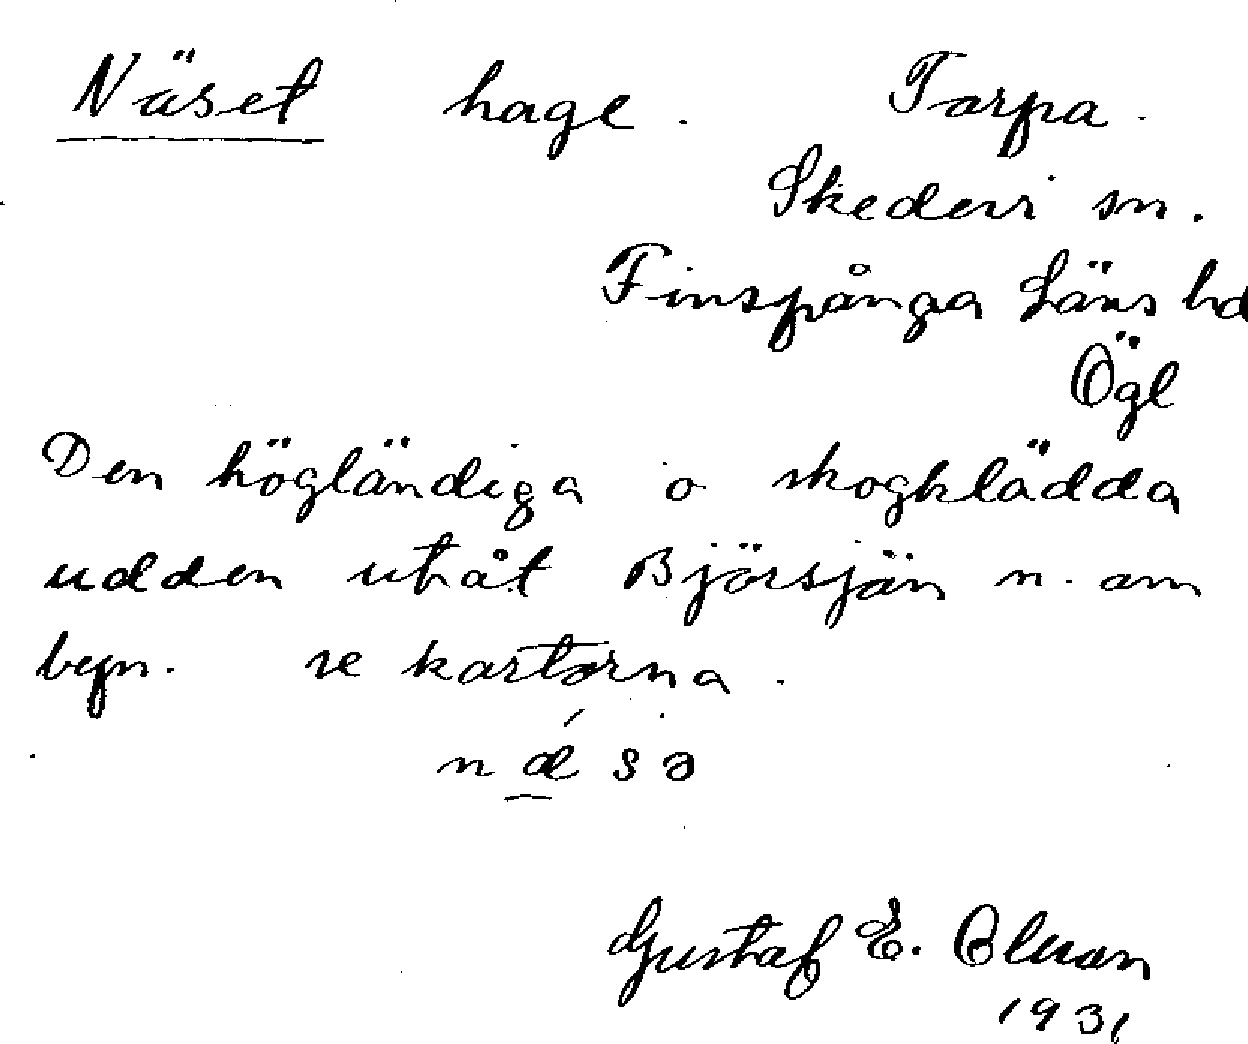 Näset hage. Torpa.
Skedevi sn.
Finspånga Läns hd
Ögl
Den högländiga o skogklädda
udden utåt Björsjön n. om
byn. se kartorna.
nǽsə
Gustaf E.
1931